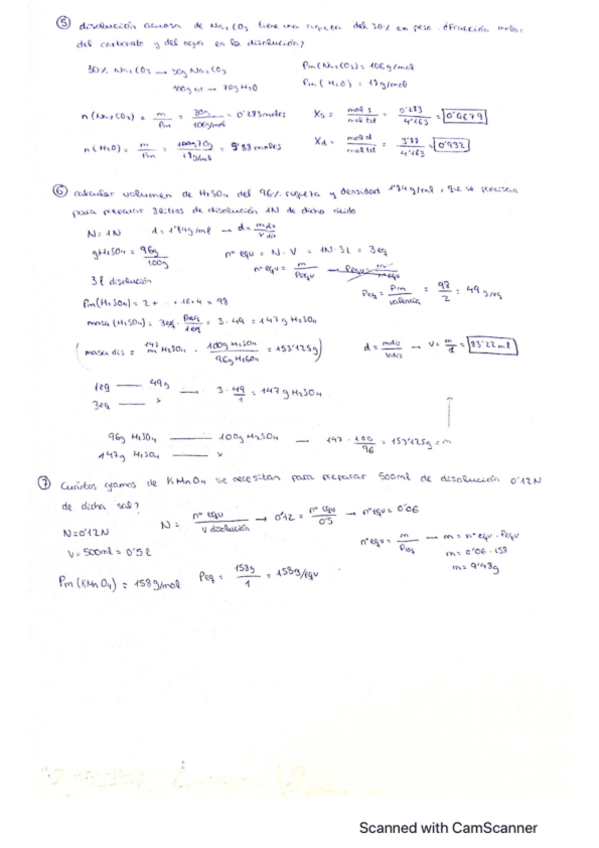 ⑤ disolución acuosa de Na₂CO₃ tiene una riqueza del 30% en peso. ¿Fracción molar
del carbonato y del agua en la disolución?
30% Na₂CO₃ → 30g Na₂CO₃ Pm(Na₂CO₃) = 106g/mol
→ 70g H₂O Pm(H₂O) = 18g/mol
n(Na₂CO₃) = m/Pm = = 0'283moles Xs = mol s/mol tot = 0'283/4'163 = 0'0679
n(H₂O) = m/Pm = = 3'88 moles Xd = mol d/mol tot = 3'88/4'163 = 0'932
⑥ calcular volumen de H₂SO₄ del 96% riqueza y densidad 1'84g/ml, que se precisan
para preparar 3litros de disolución 1N de dicho ácido
N = 1N d = 1'84g/ml → d = m dis/V dis
gH₂SO₄ = 96g/100g nº equ = N · V = 1N · 3L = 3eq
nº equ = m/Pequ →
3l disolución Peq = Pm/valencia = 98/2 = 49 g/eq
Pm(H₂SO₄) = 2 + .. + 16·4 = 98
masa (H₂SO₄) = 3eq · Peq/1eq = 3 · 49 = 147g H₂SO₄
(masa dis = 147 m H₂SO₄ · 100g H₂SO₄/96g H₂SO₄ = 153'125g) d = mdis/Vdis → V = m/d = 83'22 ml
1eq —— 49g → 3·49/1 = 147g H₂SO₄
3eq —— x
96g H₂SO₄ —— 100g H₂SO₄ → 147 · 100/96 = 153'125g = m
147g H₂SO₄ —— x
⑦ Cuántos gramos de KMnO₄ se necesitan para preparar 500ml de disolución 0'12N
de dicha sal?
N = 0'12N N = nº equ/V disolución → 0'12 = nº equ/0'5 → nº equ = 0'06
V = 500ml = 0'5 l nº equ = m/Peq → m = nº equ · Pequ
m = 0'06 · 158
Pm(KMnO₄) = 158g/mol Peq = 158g/1 = 158g/equ m = 9'48g
Scanned with CamScanner